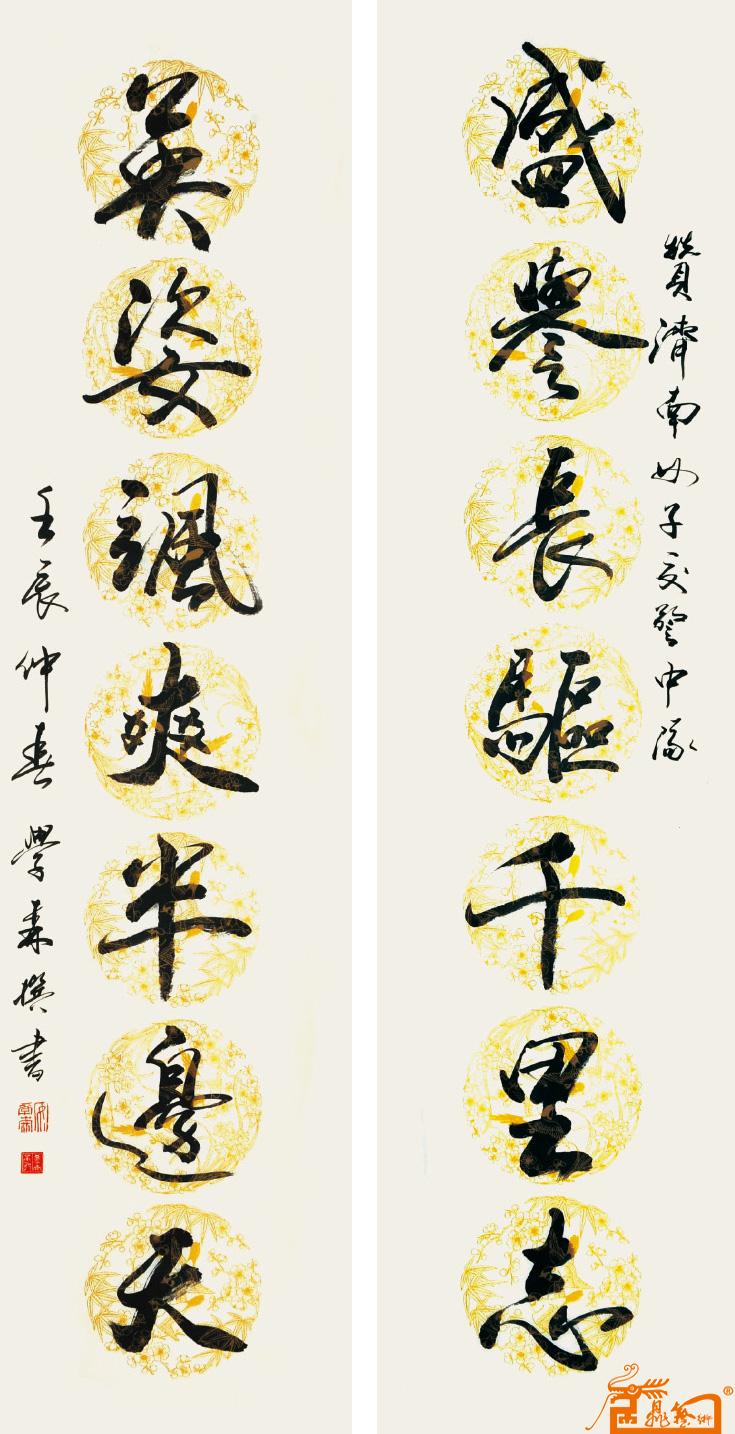 贊濟南女子交警中隊
盛譽長驅千里志
英姿颯爽半邊天
壬辰仲春學森撰書